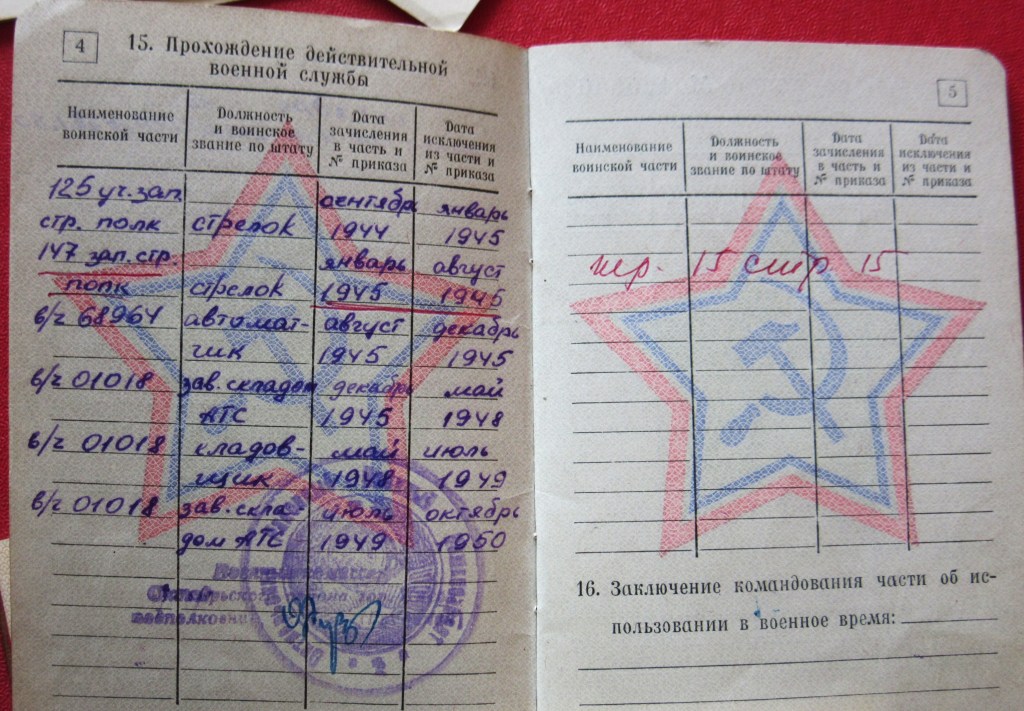 4
15. Прохождение действительной
военной службы
Наименование воинской части
Должность и воинское звание по штату
Дата зачисления в часть и № приказа
Дата исключения из части и № приказа
125 уч. зап. сентябрь январь
стр. полк стрелок 1944 1945
147 зап. стр. январь август
полк стрелок 1945 1945
в/ч 68964 автомат- август декабрь
чик 1945 1945
в/ч 01018 зав. складом декабрь май
АТС 1945 1948
в/ч 01018 кладов- май июль
щик 1948 1949
в/ч 01018 зав. скла- июль октябрь
дом АТС 1949 1950
5
Наименование воинской части
Должность и воинское звание по штату
Дата зачисления в часть и № приказа
Дата исключения из части и № приказа
15 стр 15
16. Заключение командования части об ис-
пользовании в военное время: